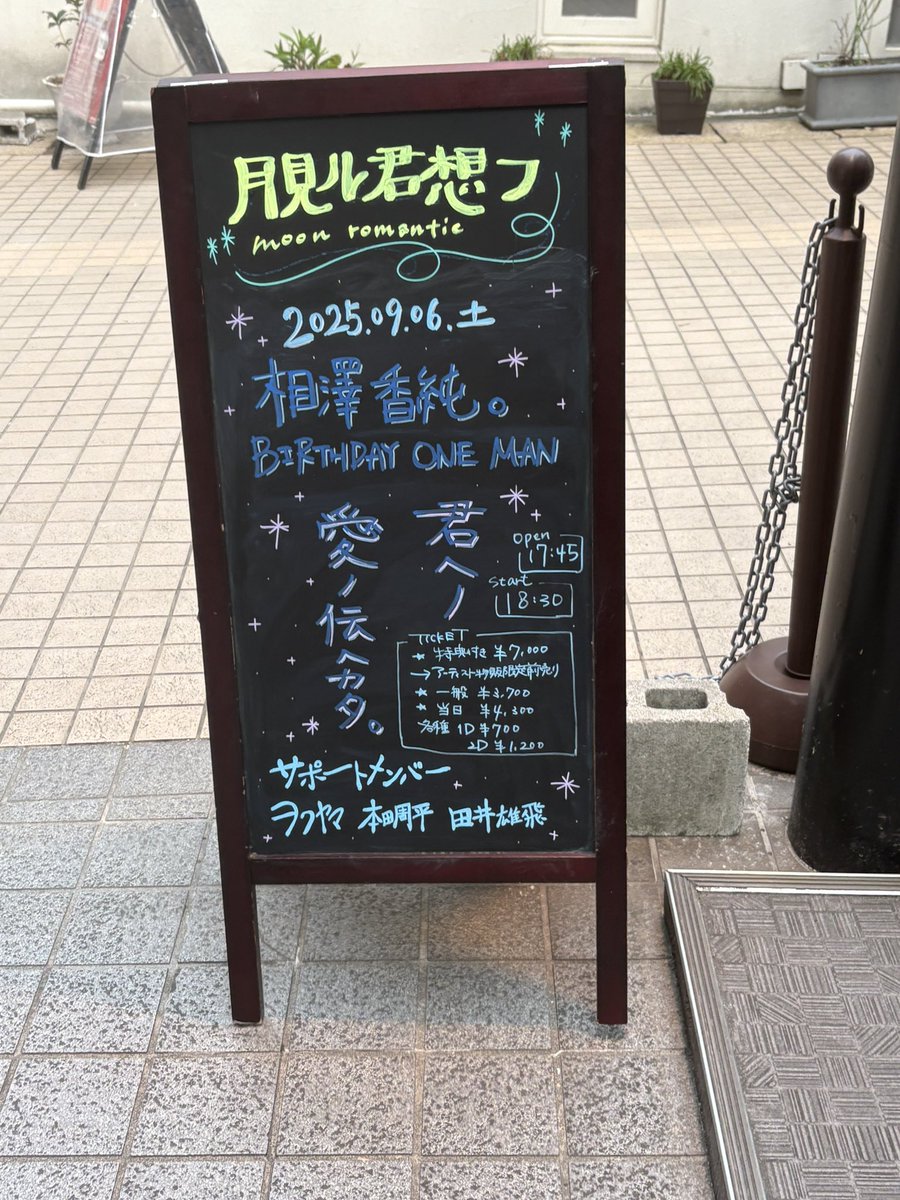 月見ル君想フ
moon romantic
2025.09.06.土
相澤香純。
BIRTHDAY ONE MAN
君へノ
愛ノ伝ヘカタ。
open
17:45
start
18:30
TICKET
★ 特典付き ¥7,000
→アーティスト物販限定前売り
★ 一般 ¥3,700
★ 当日 ¥4,300
各種 1D ¥700
2D ¥1,200
サポートメンバー
ヲフヤマ 本田周平 田井雄飛